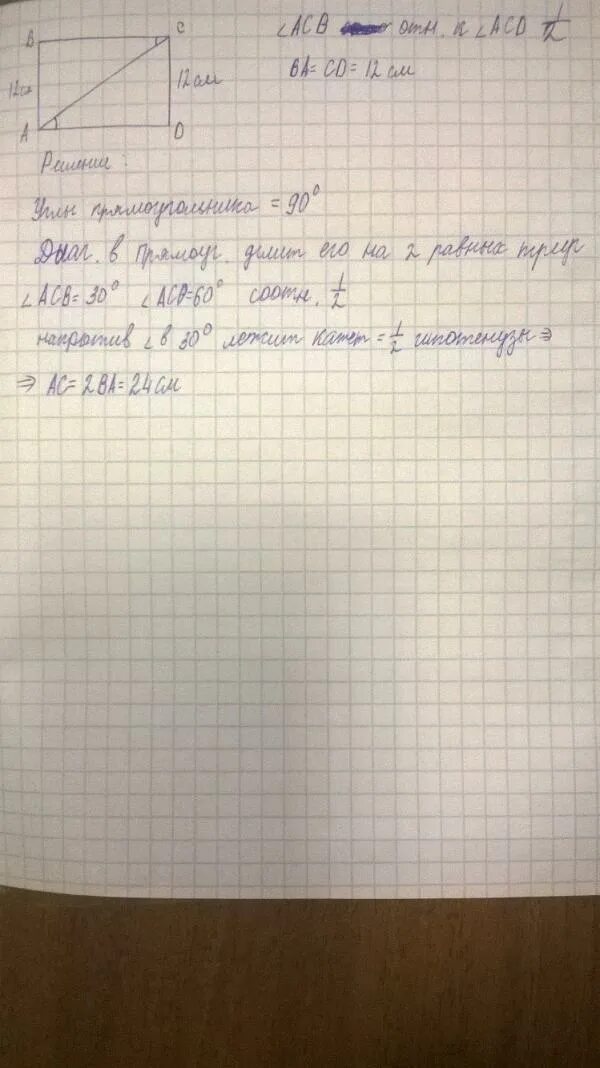 B C
∠ACB отн. к ∠ACD 1/2
12см 12 см
BA = CD = 12 см
A D
Решение:
Углы прямоугольника = 90°
Диаг. в прямоуг. делит его на 2 равных треуг
∠ACB = 30° ∠ACD = 60° соотн. 1/2
напротив ∠ в 30° лежит катет = 1/2 гипотенузы ⇒
⇒ AC = 2BA = 24 см